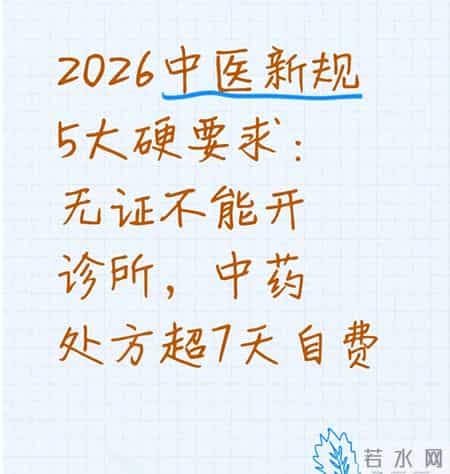 2026中医新规
5大硬要求：
无证不能开
诊所，中药
处方超7天自费
若水网